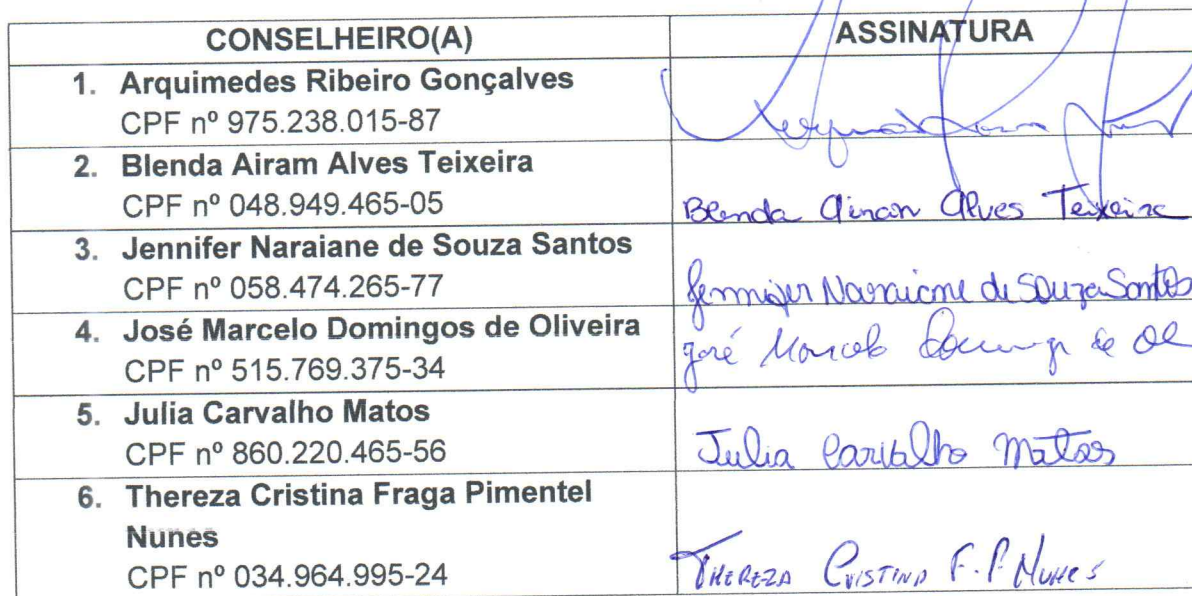 CONSELHEIRO(A) ASSINATURA
1. Arquimedes Ribeiro Gonçalves
CPF nº 975.238.015-87
2. Blenda Airam Alves Teixeira
CPF nº 048.949.465-05 Blenda Airam Alves Teixeira
3. Jennifer Naraiane de Souza Santos
CPF nº 058.474.265-77 Jennifer Naraiane de Souza Santos
4. José Marcelo Domingos de Oliveira
CPF nº 515.769.375-34 José Marcelo
5. Julia Carvalho Matos
CPF nº 860.220.465-56 Julia Carvalho Matos
6. Thereza Cristina Fraga Pimentel
Nunes
CPF nº 034.964.995-24 THEREZA CRISTINA F. P. NUNES